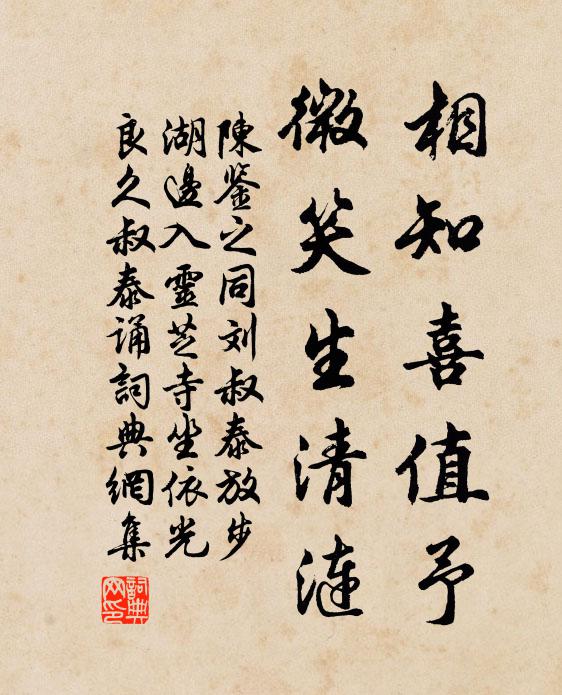 相知喜值予
微笑生清漣
陳鉴之同刘叔泰放步
湖邊入靈芝寺坐依光
良久叔泰誦詞典網集
詞典
网印